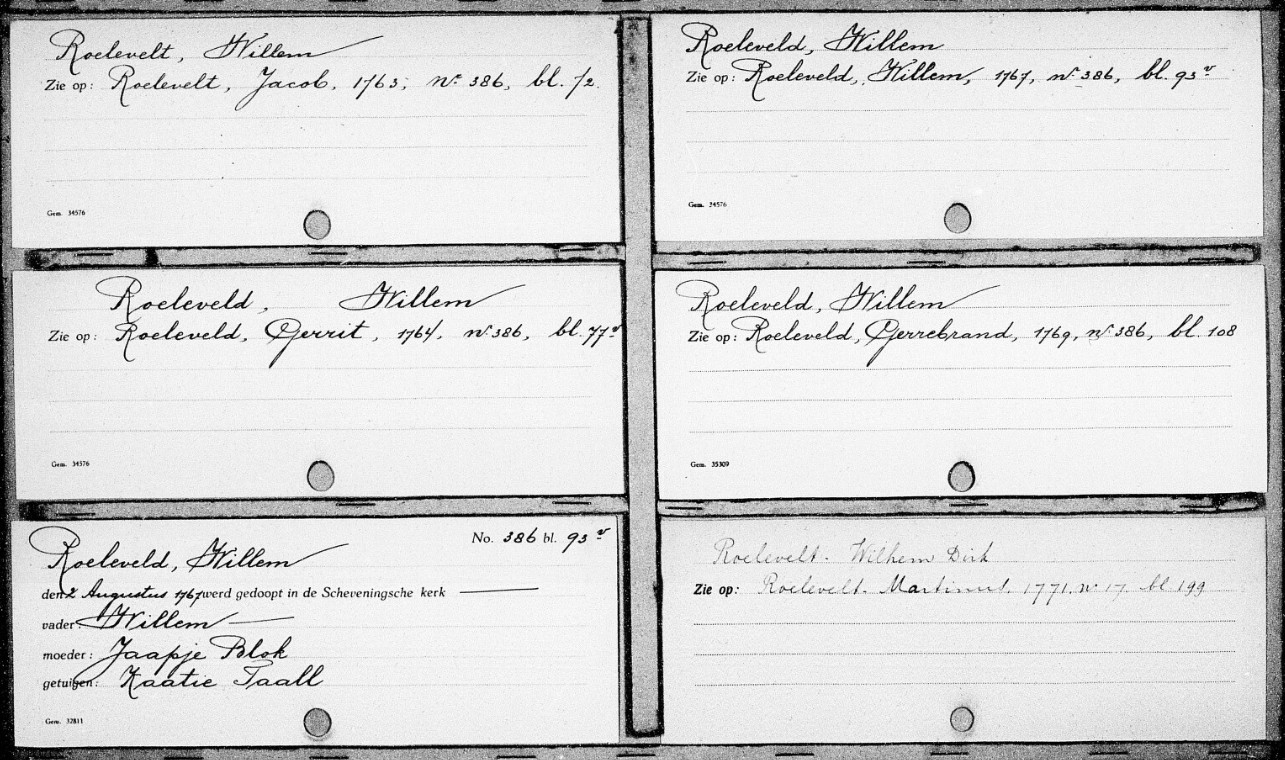 Roelevelt, Willem
Zie op: Roelevelt, Jacob, 1763, no 386, bl. 72
Gem. 34576
Roeleveld, Willem
Zie op: Roeleveld, Willem, 1767, no 386, bl. 93v
Gem. 34576
Roeleveld, Willem
Zie op: Roeleveld, Gerrit, 1764, no 386, bl. 77v
Gem. 34576
Roeleveld, Willem
Zie op: Roeleveld, Gerrebrand, 1769, no 386, bl. 108
Gem. 35309
No. 386 bl. 93v
Roeleveld, Willem
den 2 Augustus 1767 werd gedoopt in de Scheveningsche kerk
vader: Willem
moeder: Jaapje Blok
getuigen: Kaatie Taall
Gem. 37811
Roelevelt. Wilhem Dirk
Zie op: Roelevelt. Martinus. 1771. no 17. bl 199